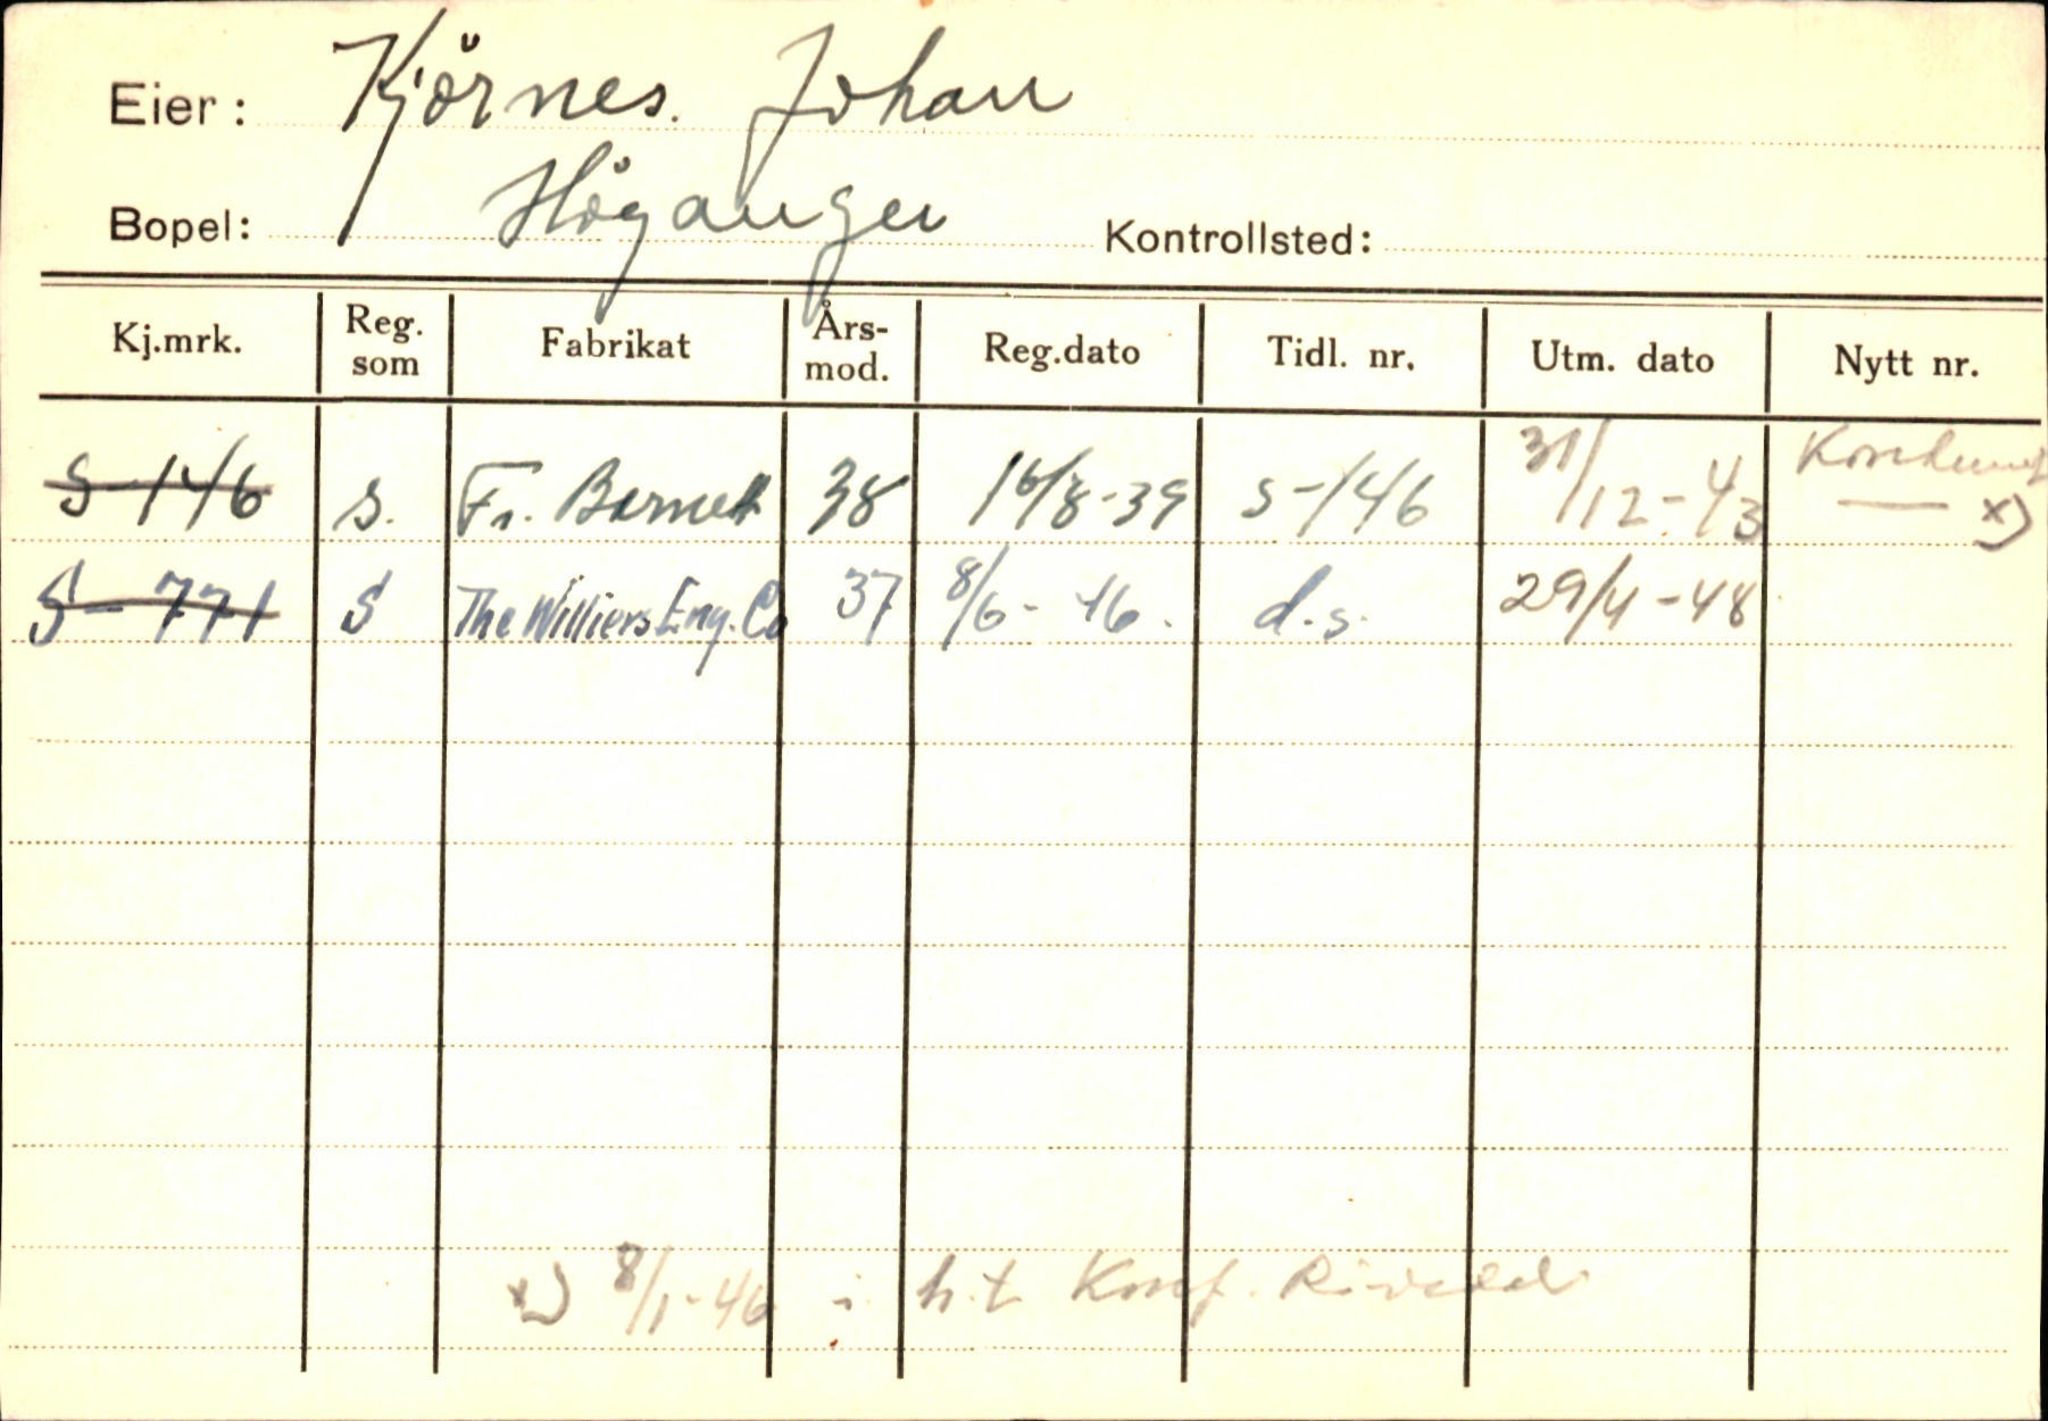 Eier: Kjörnes. Johan
Bopel: Höganger Kontrollsted:
Kj.mrk. Reg. som Fabrikat Års-mod. Reg.dato Tidl. nr. Utm. dato Nytt nr.
S-146 s. Fr. Barnett 38 16/8-39 S-146 31/12-43 x)
S-771 S The Williers Eng. Co 37 8/6-46. d.s. 29/4-48
x) 8/1-46 i h.t Konf.